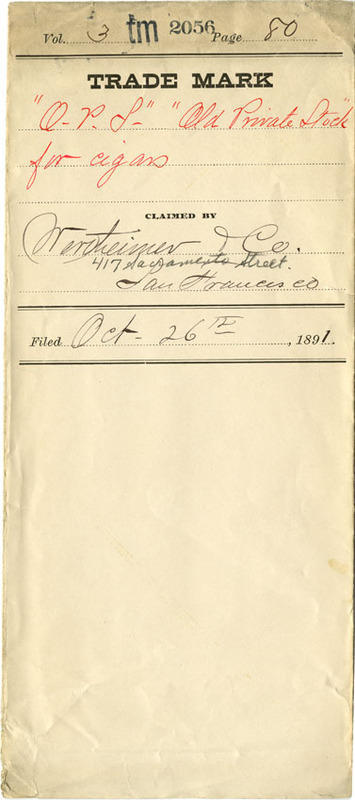 Vol. 3 tm 2056 Page 80
TRADE MARK
"O-P. S-" "Old Private Stock"
for cigars
CLAIMED BY
Wertheimer & Co.
417 Sacramento Street.
San Francisco
Filed Oct- 26TH, 1891.